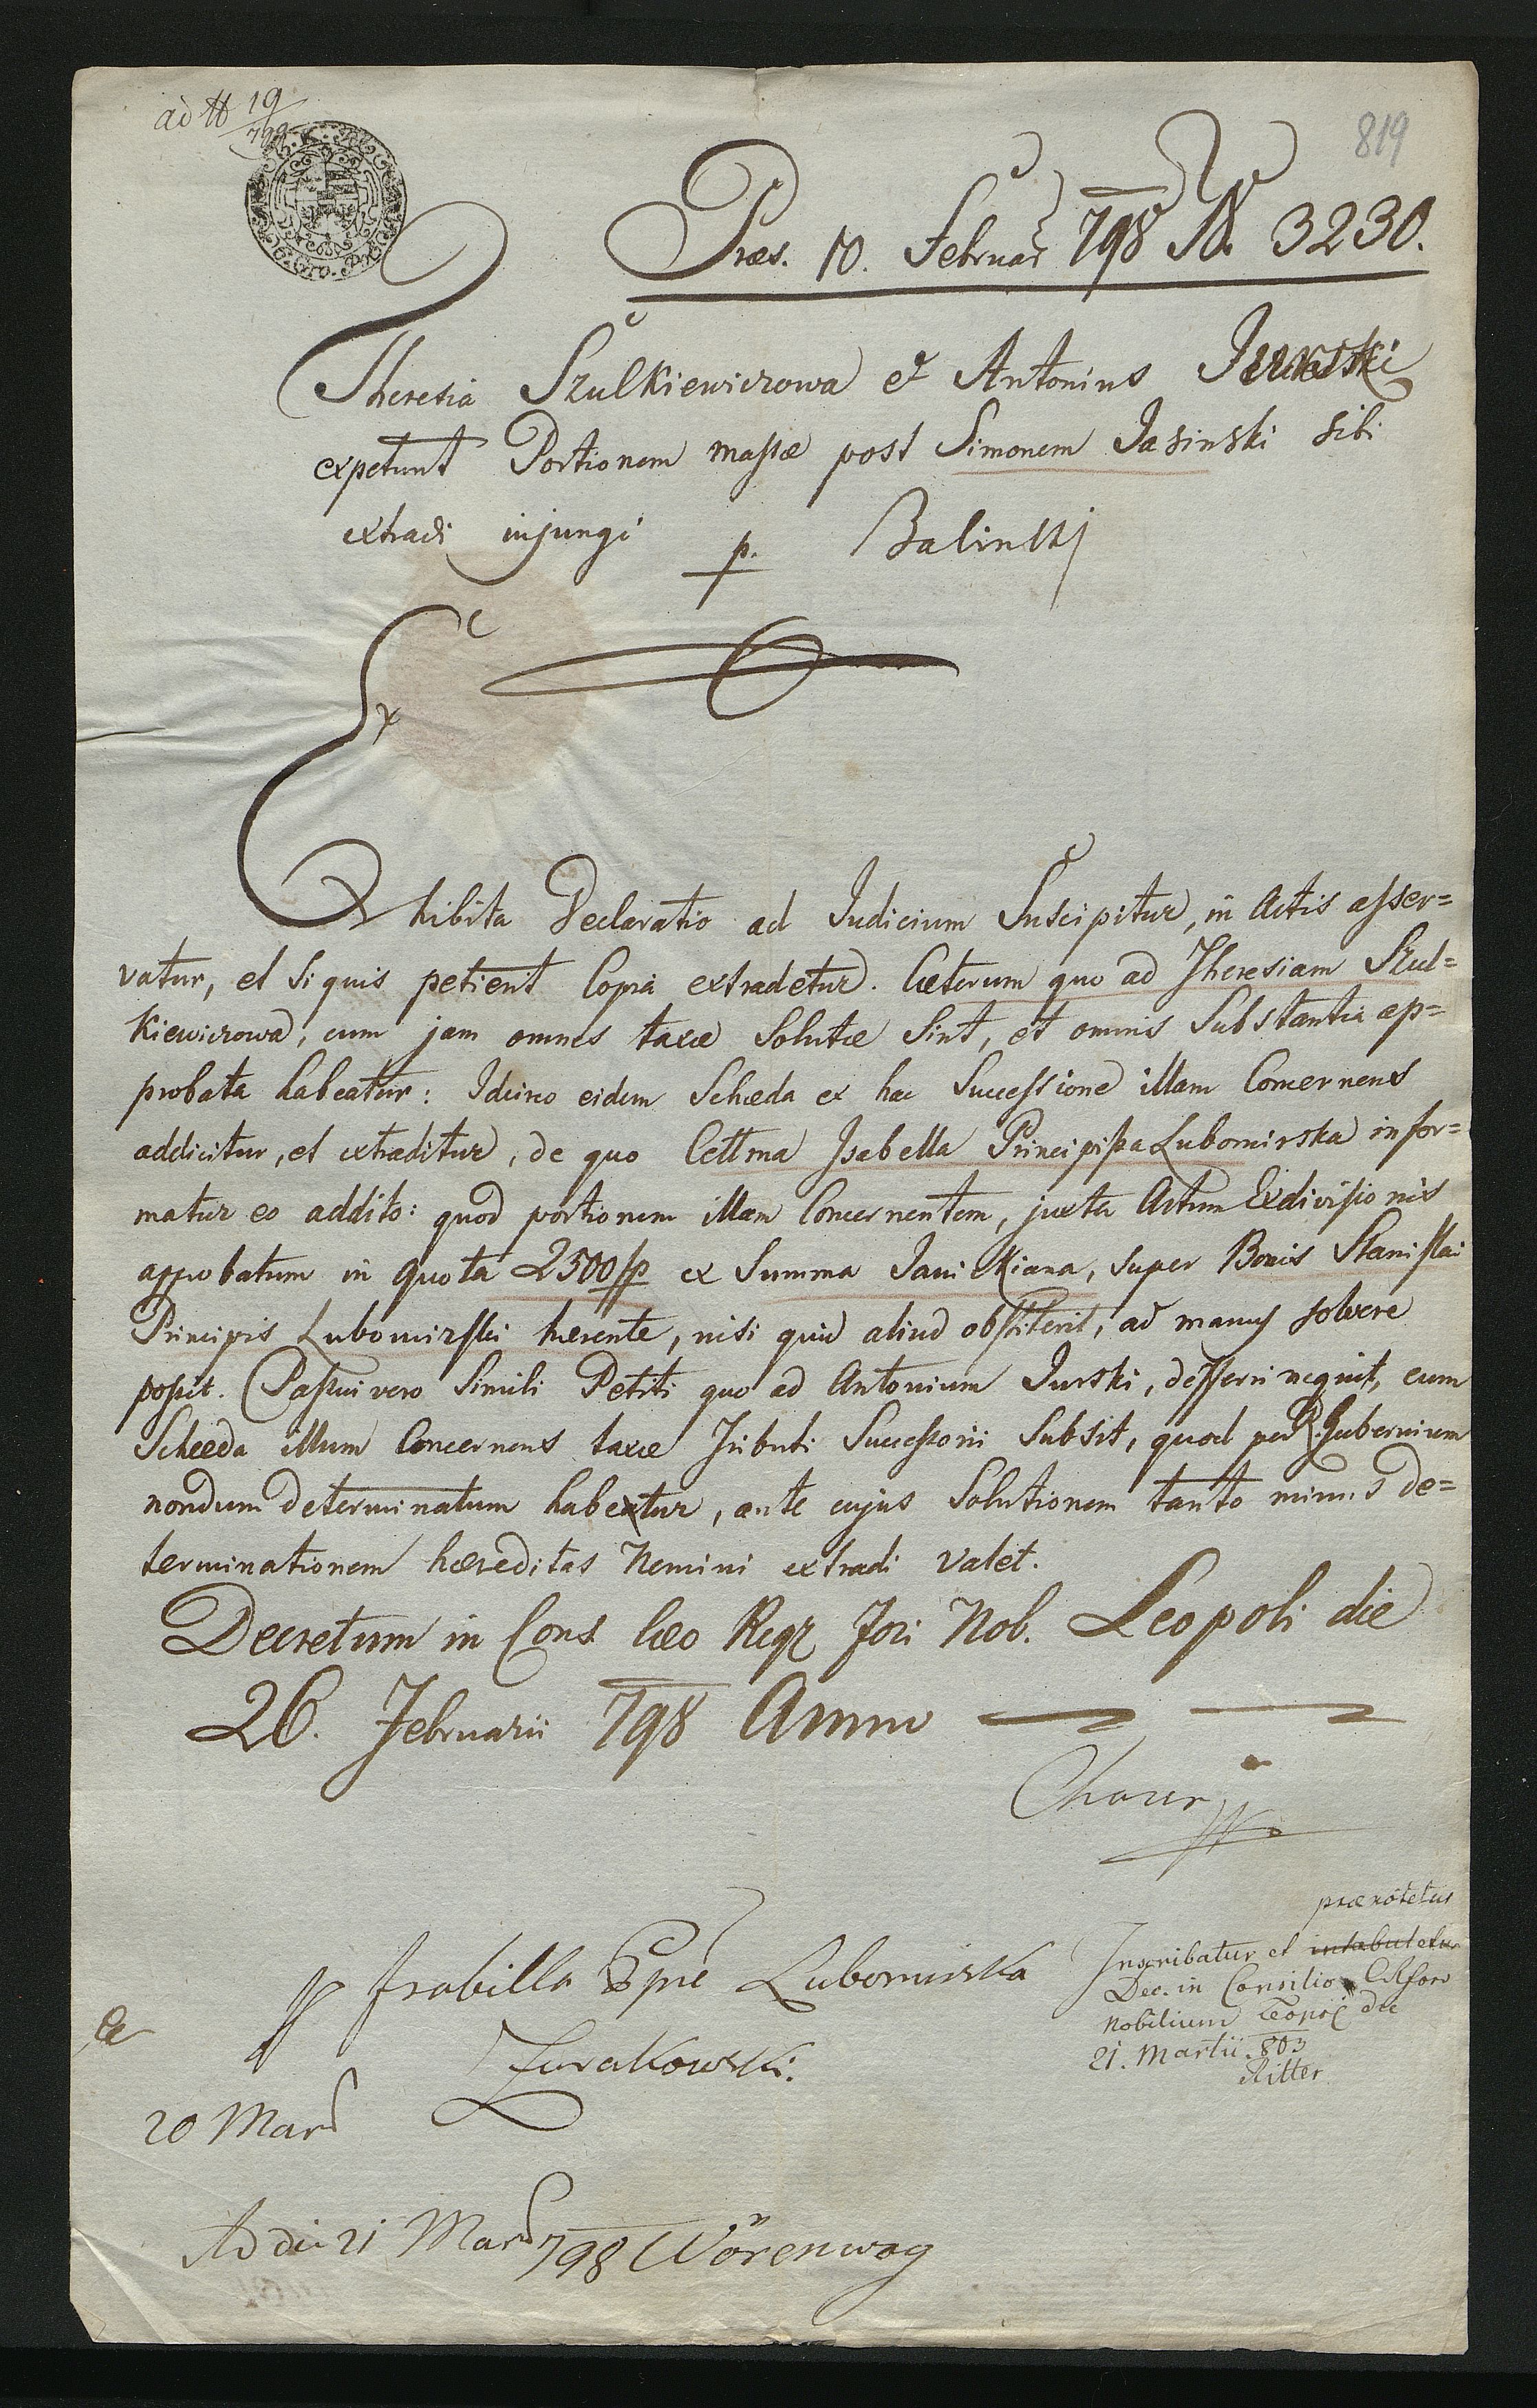 ad # 19/799
819
Præs. 10. Februar 798 No. 3230.
Theresia Szulkiewiczowa et Antonius Jurski
expetunt Portionem massæ post Simonem Jasinski sibi
extradi injungi p. Balinski
Ex
Exhibita Declaratio ad Judicium Suscipitur, in Actis asser=
vatur, et si quis petierit Copia extradetur. Cæterum quo ad Theresiam Szul=
kiewiczowa, cum jam omnes taxæ Solutæ Sint, et omnis Substantia ap=
probata habeatur: Idcirco eidem Scheda ex hac Successione illam Concernens
addicitur, et extraditur, de quo Cettma Isabella Principissa Lubomirska infor=
matur eo addito: quod portionem illam Concernentem, juxta Actum Exdivisionis
approbatum in quota 2500 fp ex Summa Janickiana, super Bonis Stanislai
Principis Lubomirski hærente, nisi quid aliud obstiterit, ad manus solvere
possit. Passui vero Simili Petiti quo ad Antonium Jurski, defferri nequit, cum
Scheda illum Concernens taxæ Tributi Successorii Subsit, quod per R. Gubernium
nondum determinatum habetur, ante cujus Solutionem tanto minus de=
terminationem hæreditas Nemini extradi valet.
Decretum in Cons. Cæo Reg Fori Nob. Leopoli die
26. Februarii 798 Anno
prænotetur
Inscribatur et intabuletur
Isabilla Lubomirska
Dec. in Consilio C R foro
Nobilium Leopoli die
21. Martii 803
Ritter
Zurakowski.
20 Mar
Ad die 21 Mar 798 Wörenwag